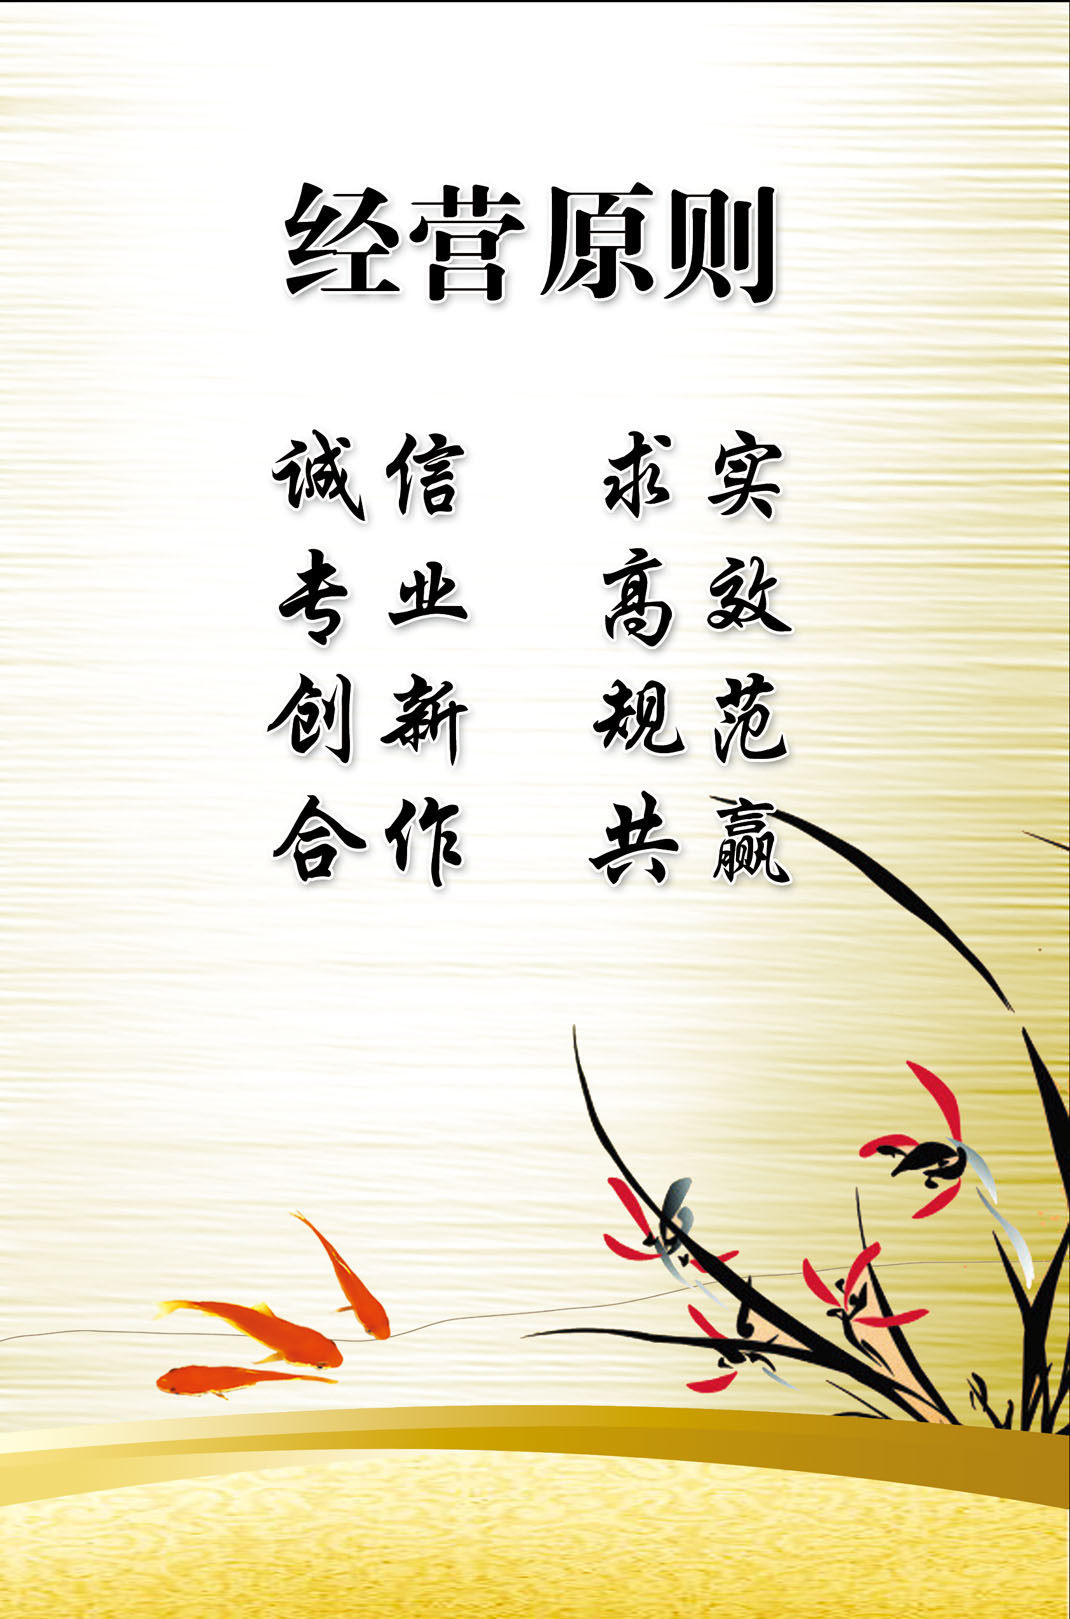 经营原则
诚信 求实
专业 高效
创新 规范
合作 共赢